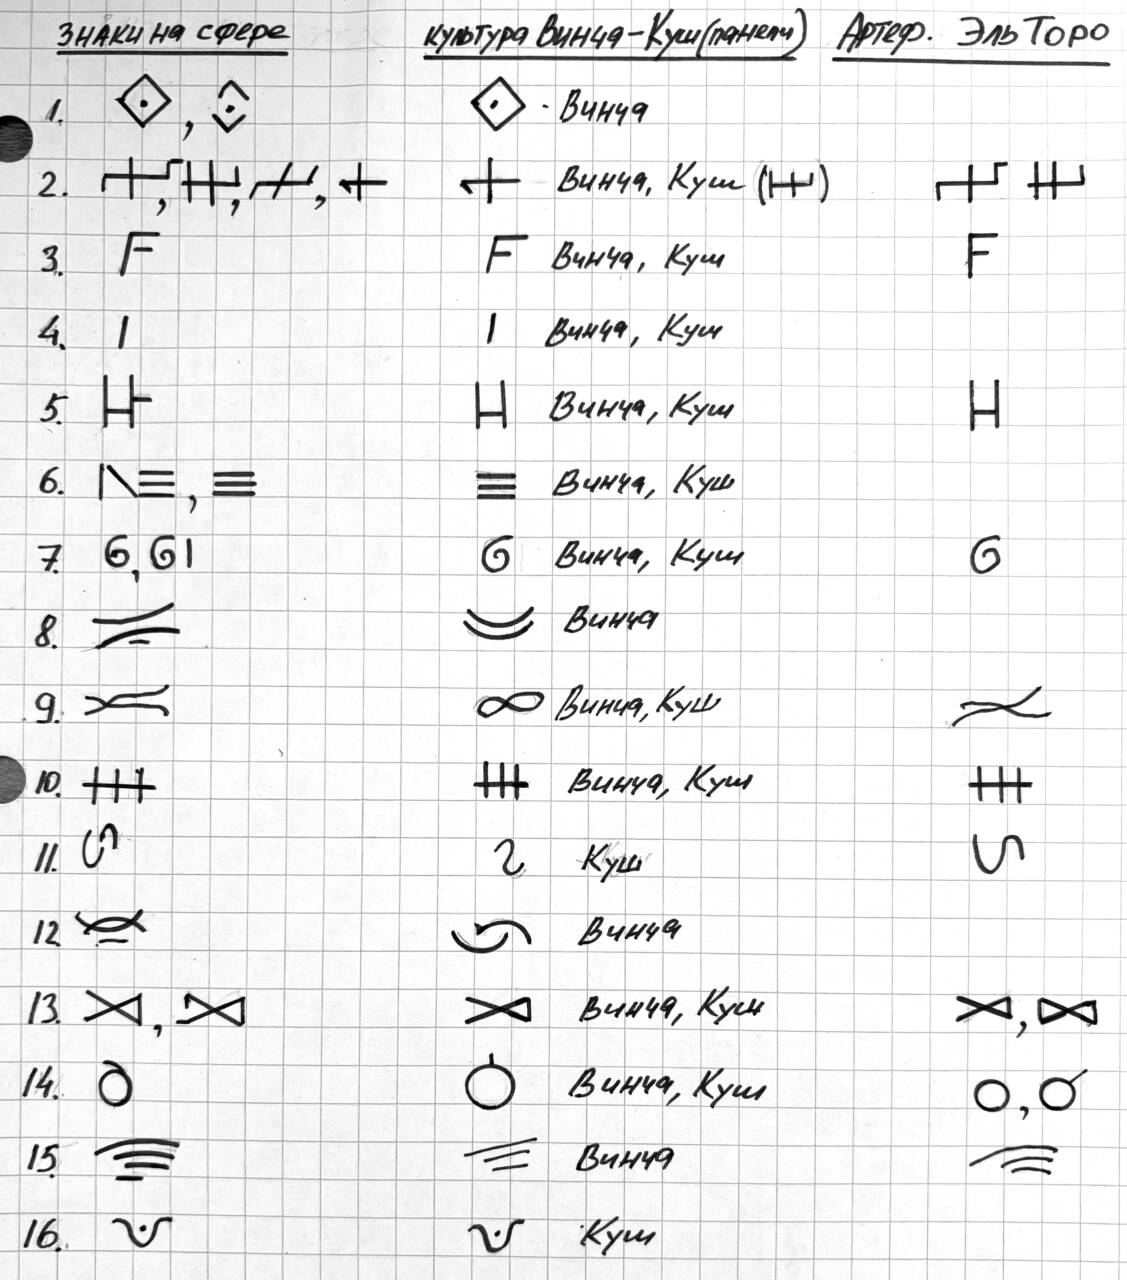 знаки на сфере культура Винча-Куш(панели) Артеф. Эль Торо
1. , · Винча
2. , , , Винча, Куш ( )
3. F F Винча, Куш F
4. I I Винча, Куш
5. H Винча, Куш H
6. , Винча, Куш
7. 6, 6I 6 Винча, Куш 6
8. Винча
9. Винча, Куш
10. Винча, Куш
11. Куш
12 Винча
13. , Винча, Куш ,
14. Винча, Куш ,
15. Винча
16. Куш